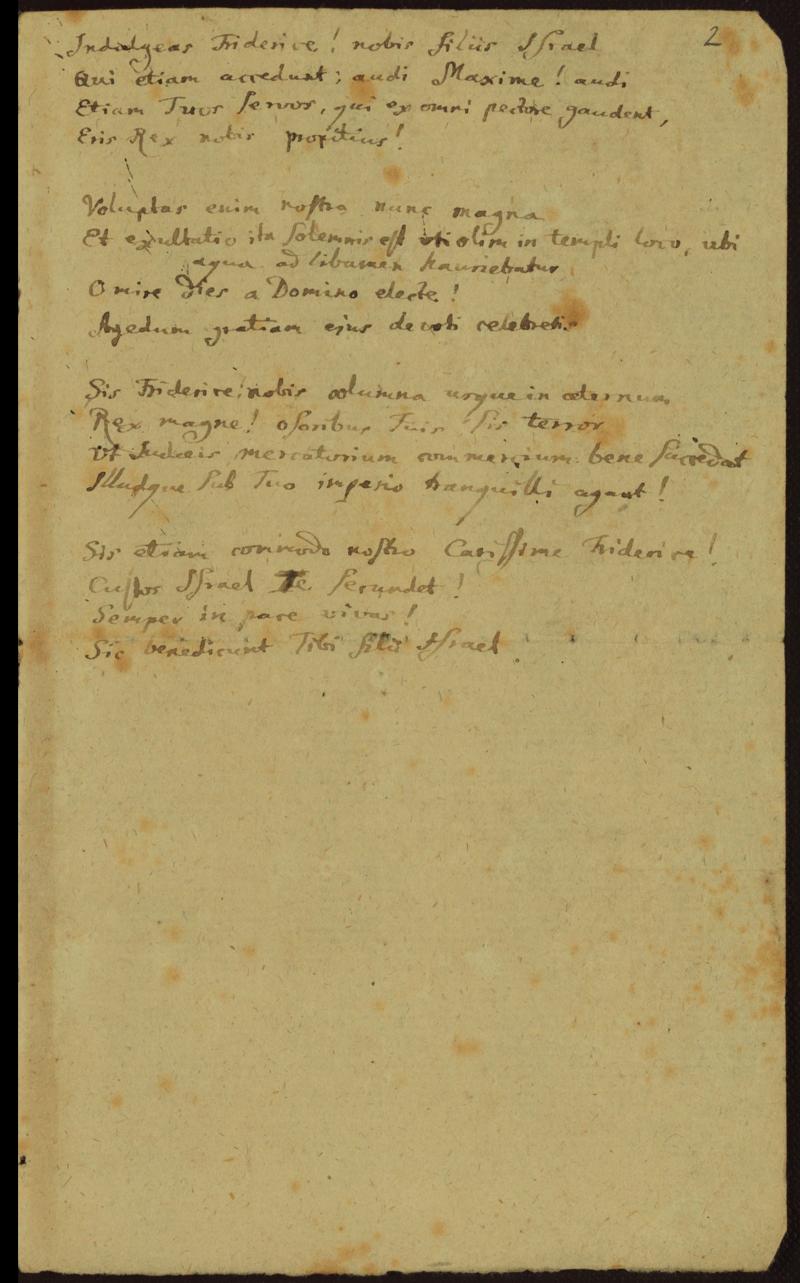 2
Indulgeas Friderice! nobis filiis Israel
Qui etiam accedunt; audi Maxime! audi
Etiam Tuos servos, qui ex omni pectore gaudent,
Eris Rex nobis propitius!
Voluptas enim nostra nunc magna
Et exultatio ita solemnis est uti olim in templi loco, ubi
aqua ad libamen hauriebatur
O mire dies a Domino electe!
Agedum gratiam ejus devoti celebretis
Sis Friderice! nobis columna usque in æternum
Rex magne! osoribus Tuis sis terror
Ut Judæis mercatorium commercium bene succedat
Illudque sub Tuo imperio tranquilli agant!
Sis etiam commodo nostro Carissime Friderice!
Custos Israel Te secundet!
Semper in pace vivas!
Sic benedicunt Tibi filii Israel